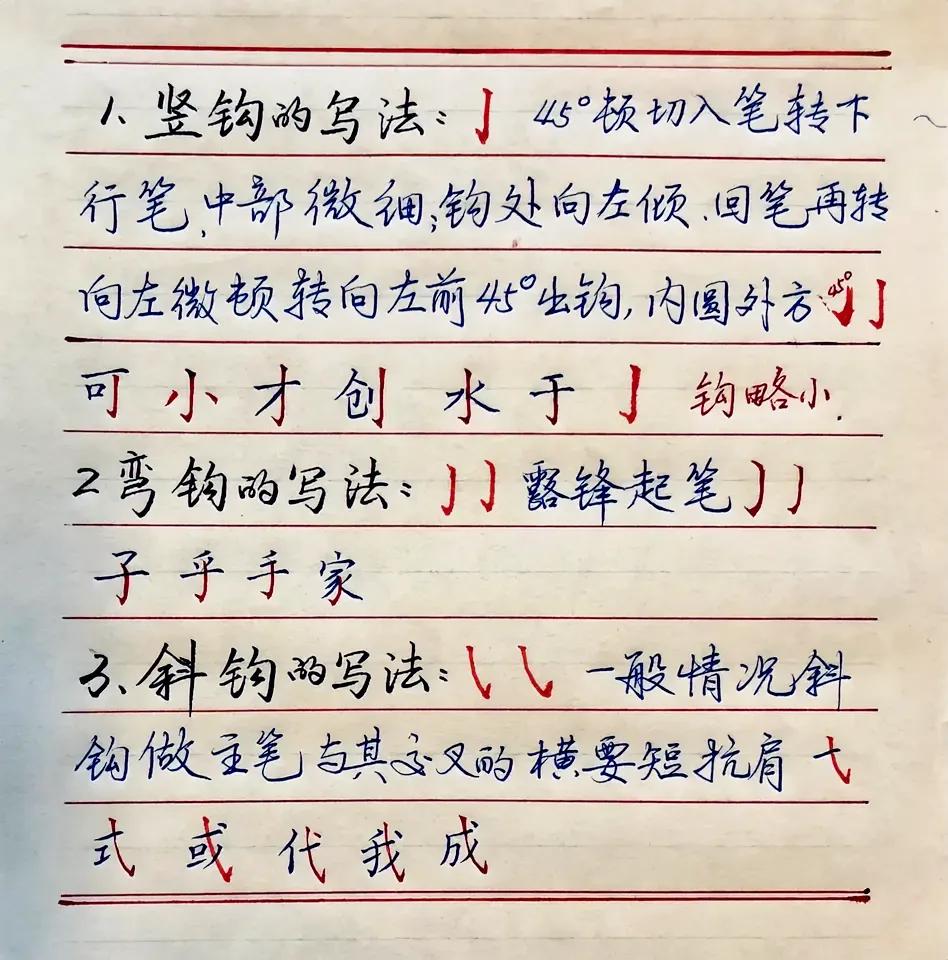 1、竖钩的写法：亅 45°顿切入笔转下
行笔,中部微细;钩处向左倾、回笔再转
向左微顿转向左前45°出钩,内圆外方 45° 亅亅
可 小 才 创 水 于 亅 钩略小.
2 弯钩的写法：㇁㇁ 露锋起笔 ㇁㇁
子 乎 手 家
3、斜钩的写法：㇂㇂ 一般情况斜
钩做主笔与其交叉的横要短抗肩 弋
式 或 代 我 成